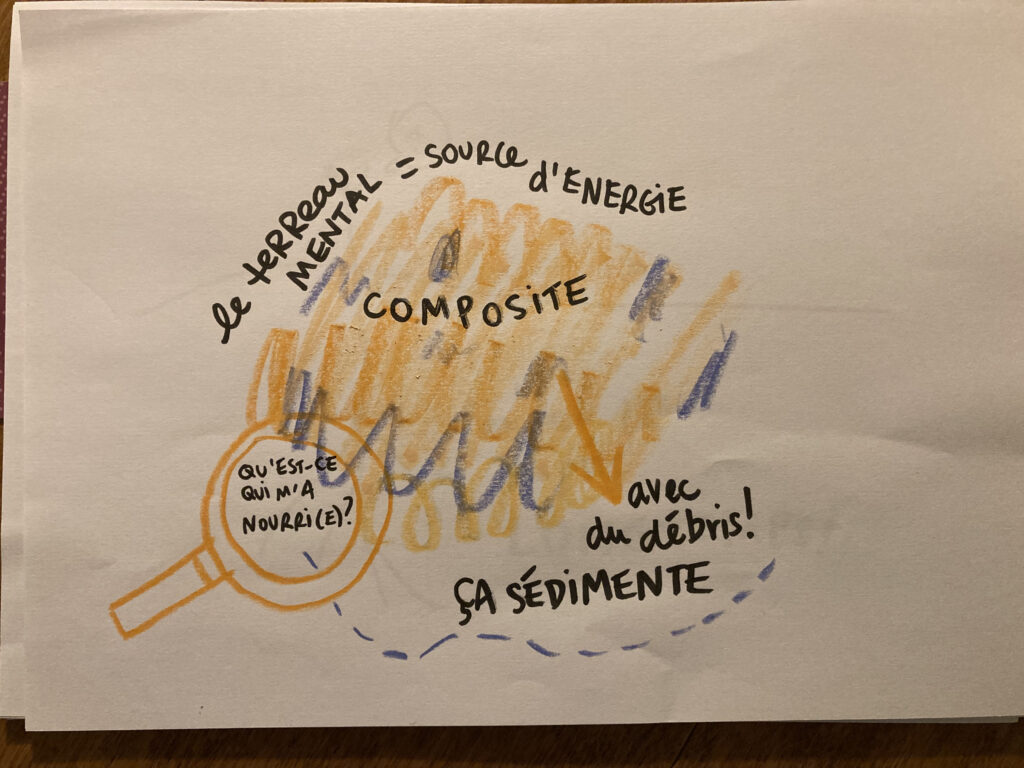 le teRReau
MENTAL
= SOURCe
d'ENERGiE
COMPOSiTE
QU'EST-CE
QUi M'A
NOURRi(E)?
avec
du débris!
ÇA SÉDiMENTE